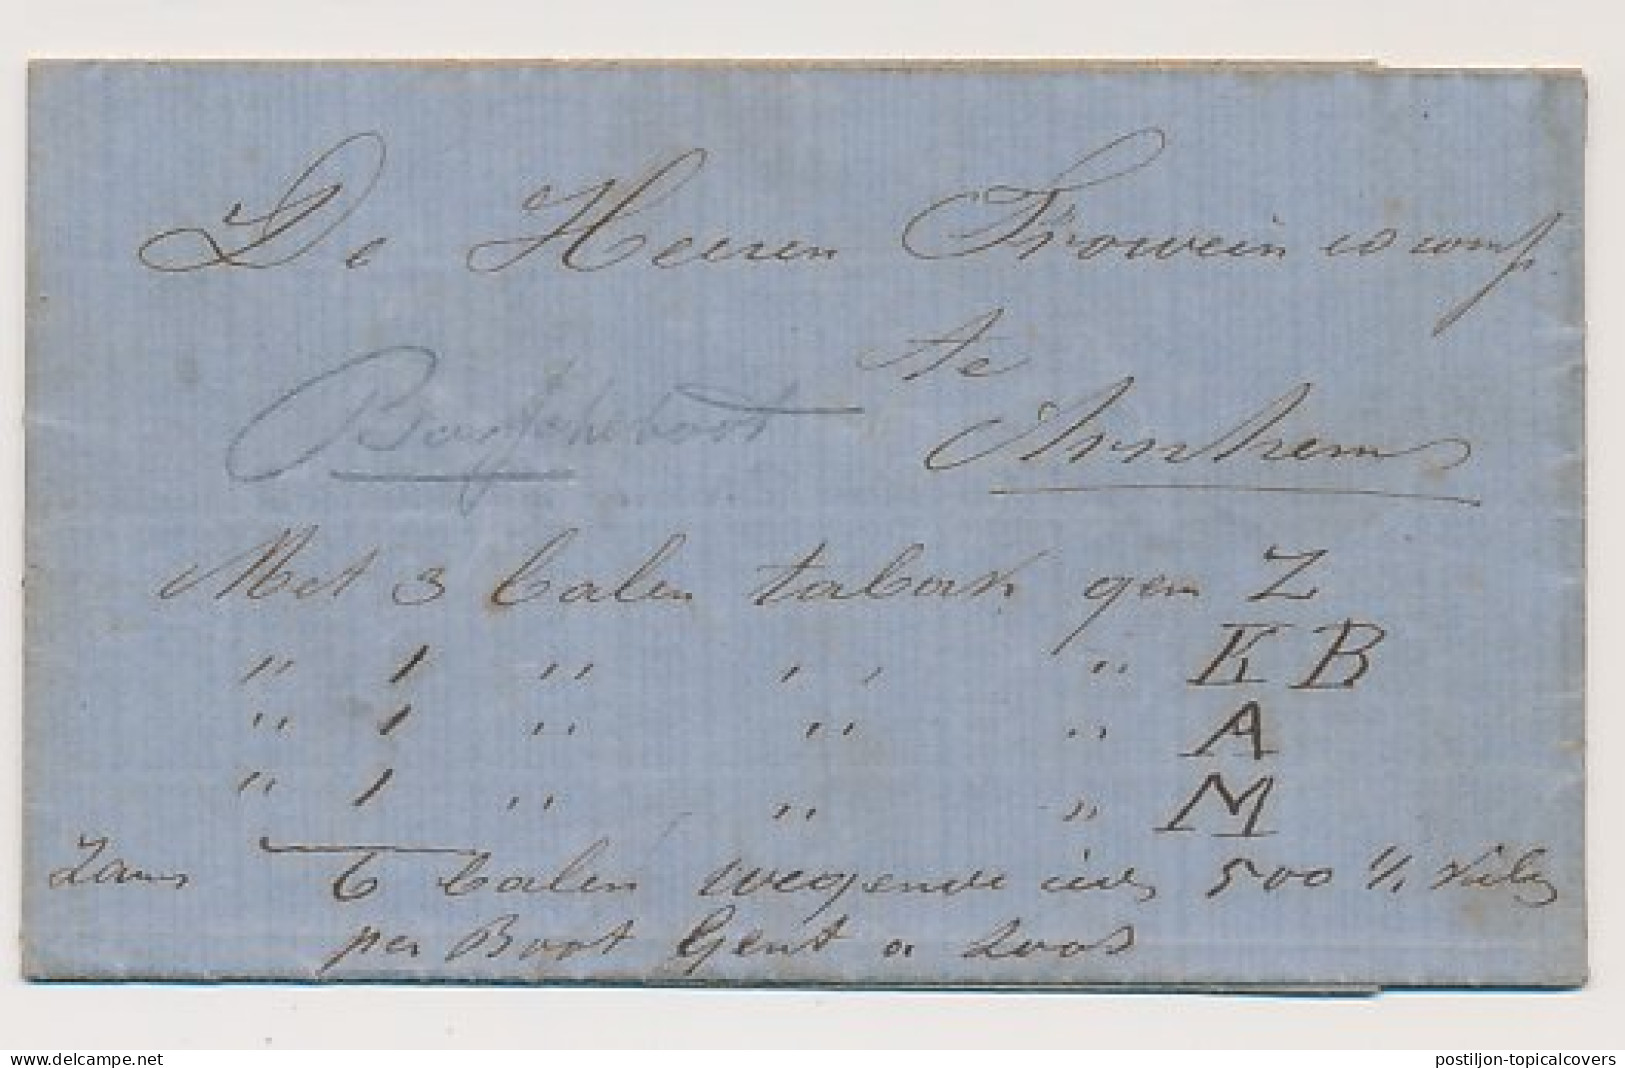 De Heeren Frowein & Comp
te
Arnhem
Met 3 balen tabak gem Z
" 1 " " " K B
" 1 " " " A
" 1 " " " M
Zams 6 balen wegende 500 Kilo
per Boot Gent a Loos
www.delcampe.net
postiljon-topicalcovers